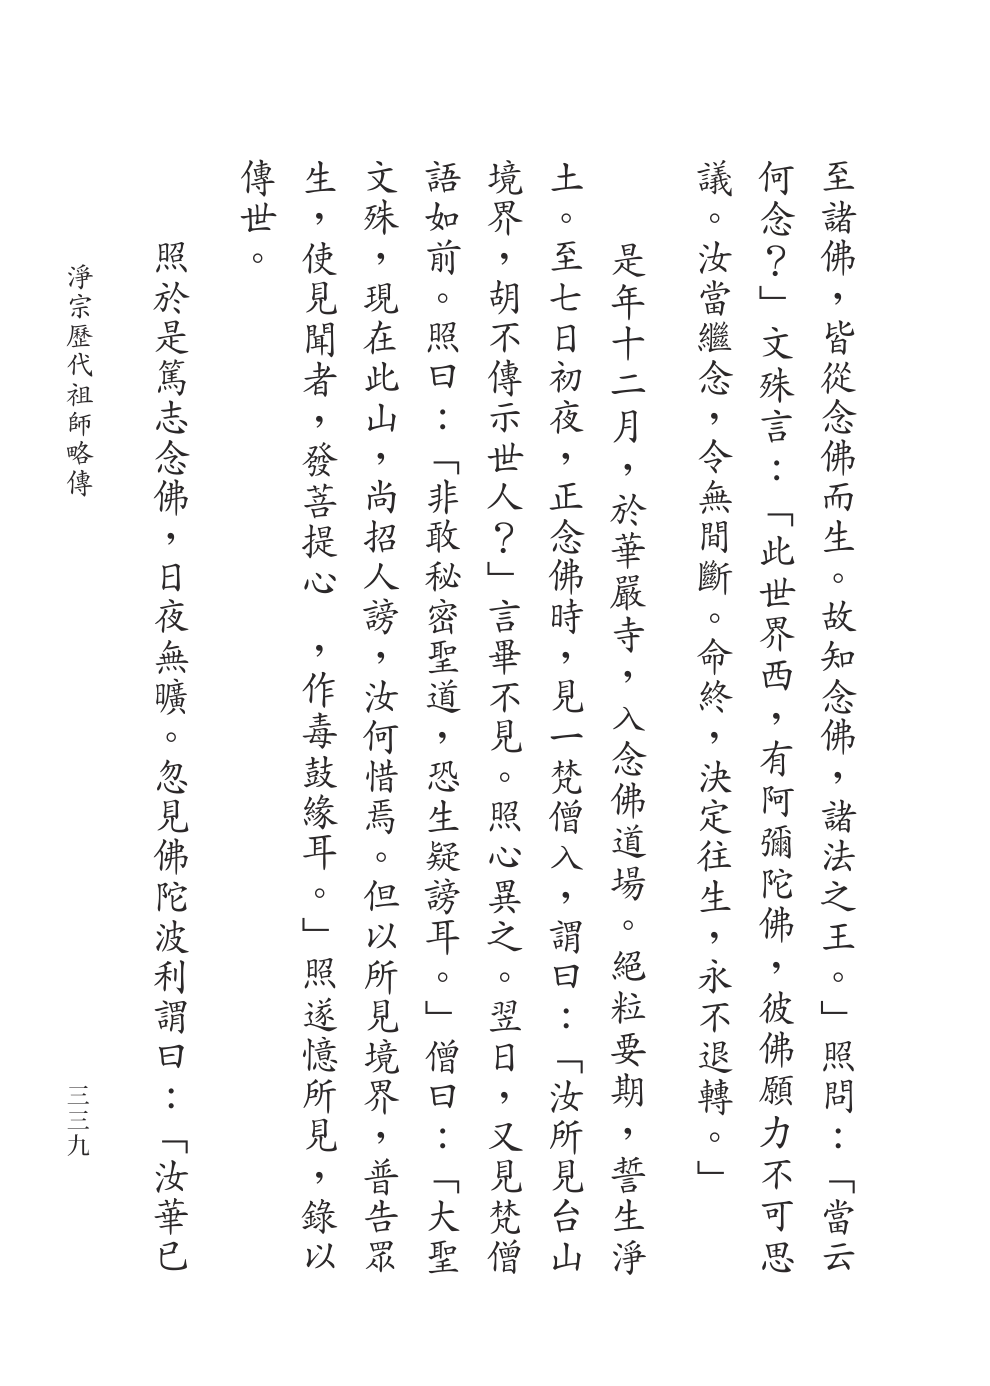 至諸佛，皆從念佛而生。故知念佛，諸法之王。」照問：「當云
何念？」文殊言：「此世界西，有阿彌陀佛，彼佛願力不可思
議。汝當繼念，令無間斷。命終，決定往生，永不退轉。」
是年十二月，於華嚴寺，入念佛道場。絕粒要期，誓生淨
土。至七日初夜，正念佛時，見一梵僧入，謂曰：「汝所見台山
境界，胡不傳示世人？」言畢不見。照心異之。翌日，又見梵僧
語如前。照曰：「非敢秘密聖道，恐生疑謗耳。」僧曰：「大聖
文殊，現在此山，尚招人謗，汝何惜焉。但以所見境界，普告眾
生，使見聞者，發菩提心　，作毒鼓緣耳。」照遂憶所見，錄以
傳世。
照於是篤志念佛，日夜無曠。忽見佛陀波利謂曰：「汝華已
淨宗歷代祖師略傳
三三九